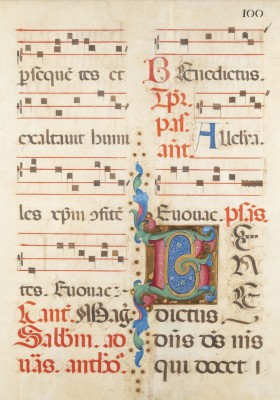 100
p̄seque̅tes et
exaltauit humi
les xp̄m ɔfite̅
tes. Euouae:-
Cant. Mag
Salbm. ad
uās. antho.
Benedictus.
Tp̄r.
pas.
ant.
Alleł̃a.
Euouae. psas.
Benedictus
dn̄s ds̄ nis
qui docet